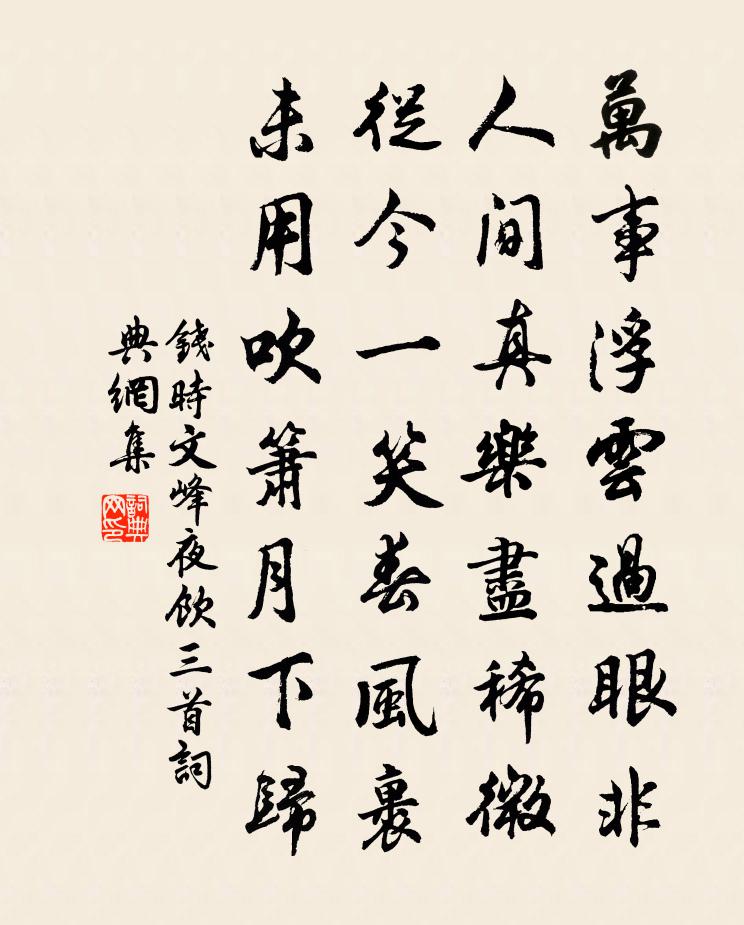 萬事浮雲過眼非
人間真樂盡稀微
從今一笑春風裏
未用吹簫月下歸
錢時文峰夜飲三首詞
典網集
詞典網印